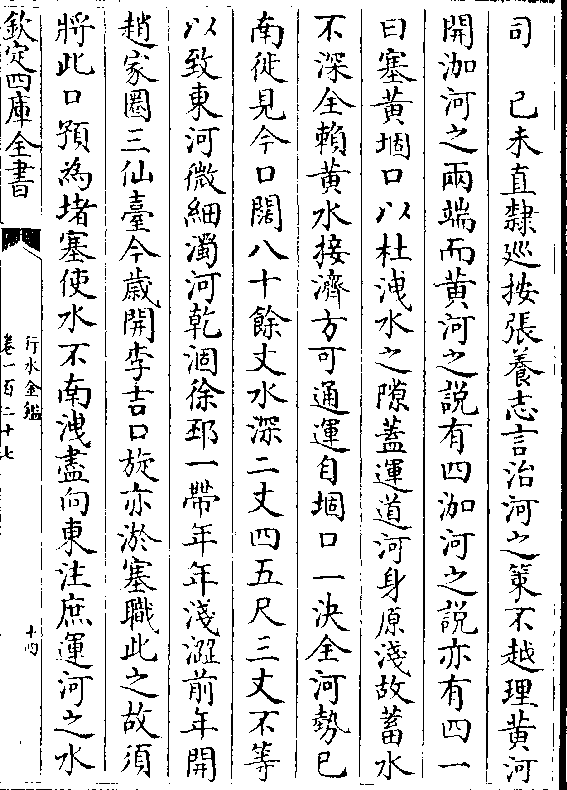 司　己未直隸廵按張養志言治河之策不越理黄河
開泇河之兩端而黄河之說有四泇河之說亦有四一
曰塞黄堌口以杜洩水之隙葢運道河身原淺故蓄水
不深全賴黄水接濟方可通運自堌口一決全河勢已
南徙見今口闊八十餘丈水深二丈四五尺三丈不等
以致東河微細濁河乾涸徐邳一帶年年淺澀前年開
趙家圈三仙臺今歲開李吉口旋亦淤塞職此之故須
將此口預為堵塞使水不南洩盡向東注庶運河之水
欽定四庫全書
行水金鑑
卷一百二十七
十四